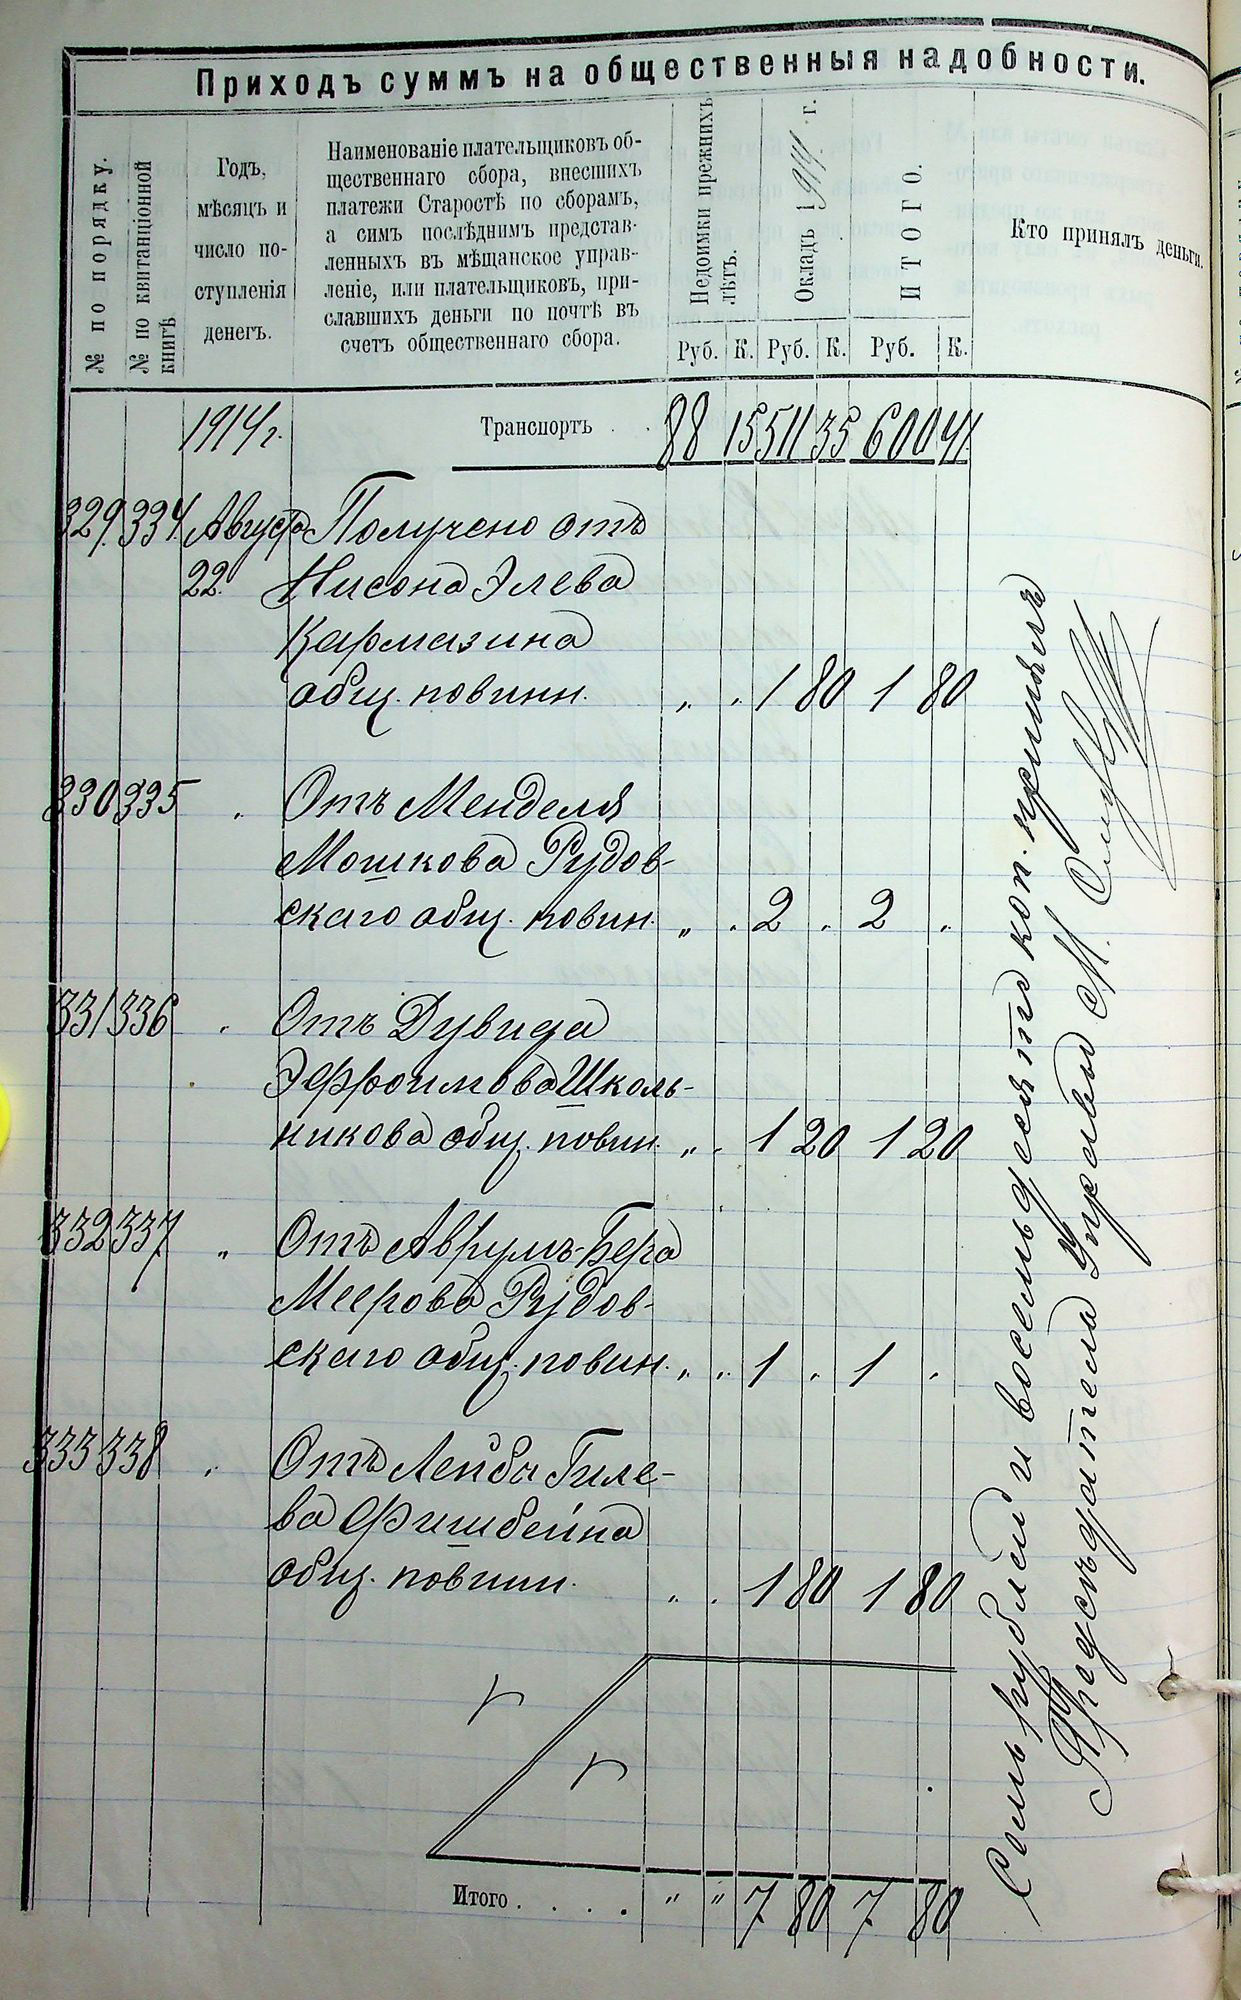 Приходъ суммъ на общественныя надобности.
№ по порядку.
№ по квитанціонной
книгѣ
Годъ,
мѣсяцъ и
число по-
ступленія
денегъ.
Наименованіе плательщиковъ об-
щественнаго сбора, внесшихъ
платежи Старостѣ по сборамъ,
а симъ послѣднимъ представ-
ленныхъ въ мѣщанское управ-
леніе, или плательщиковъ, при-
славшихъ деньги по почтѣ въ
счетъ общественнаго сбора.
Недоимки прежнихъ
лѣтъ.
Окладъ 1914 г.
ИТОГО.
Кто принялъ деньги.
Руб. К. Руб. К. Руб. К.
1914 г. Транспортъ . . 88 15 511 35 600 41
329 334 Августа Получено отъ
22 Нисона Элева
Кармазина
общ. повинн. „ . 1 80 1 80
330 335 „ Отъ Менделя
Мошкова Рудов-
скаго общ. повин. „ . 2 . 2 .
331 336 „ Отъ Дувида
Эфроимова Школь-
никова общ. повин. „ . 1 20 1 20
332 337 „ Отъ Аврумъ-Бера
Меерова Рудов-
скаго общ. повин. „ „ 1 . 1 .
333 338 „ Отъ Лейбы Гиле-
ва Фишбейна
общ. повинн. „ . 1 80 1 80
Итого . . . . „ „ 7 80 7 80
Семь рублей и восемьдесятъ коп. принялъ
Предсѣдатель Управы М.